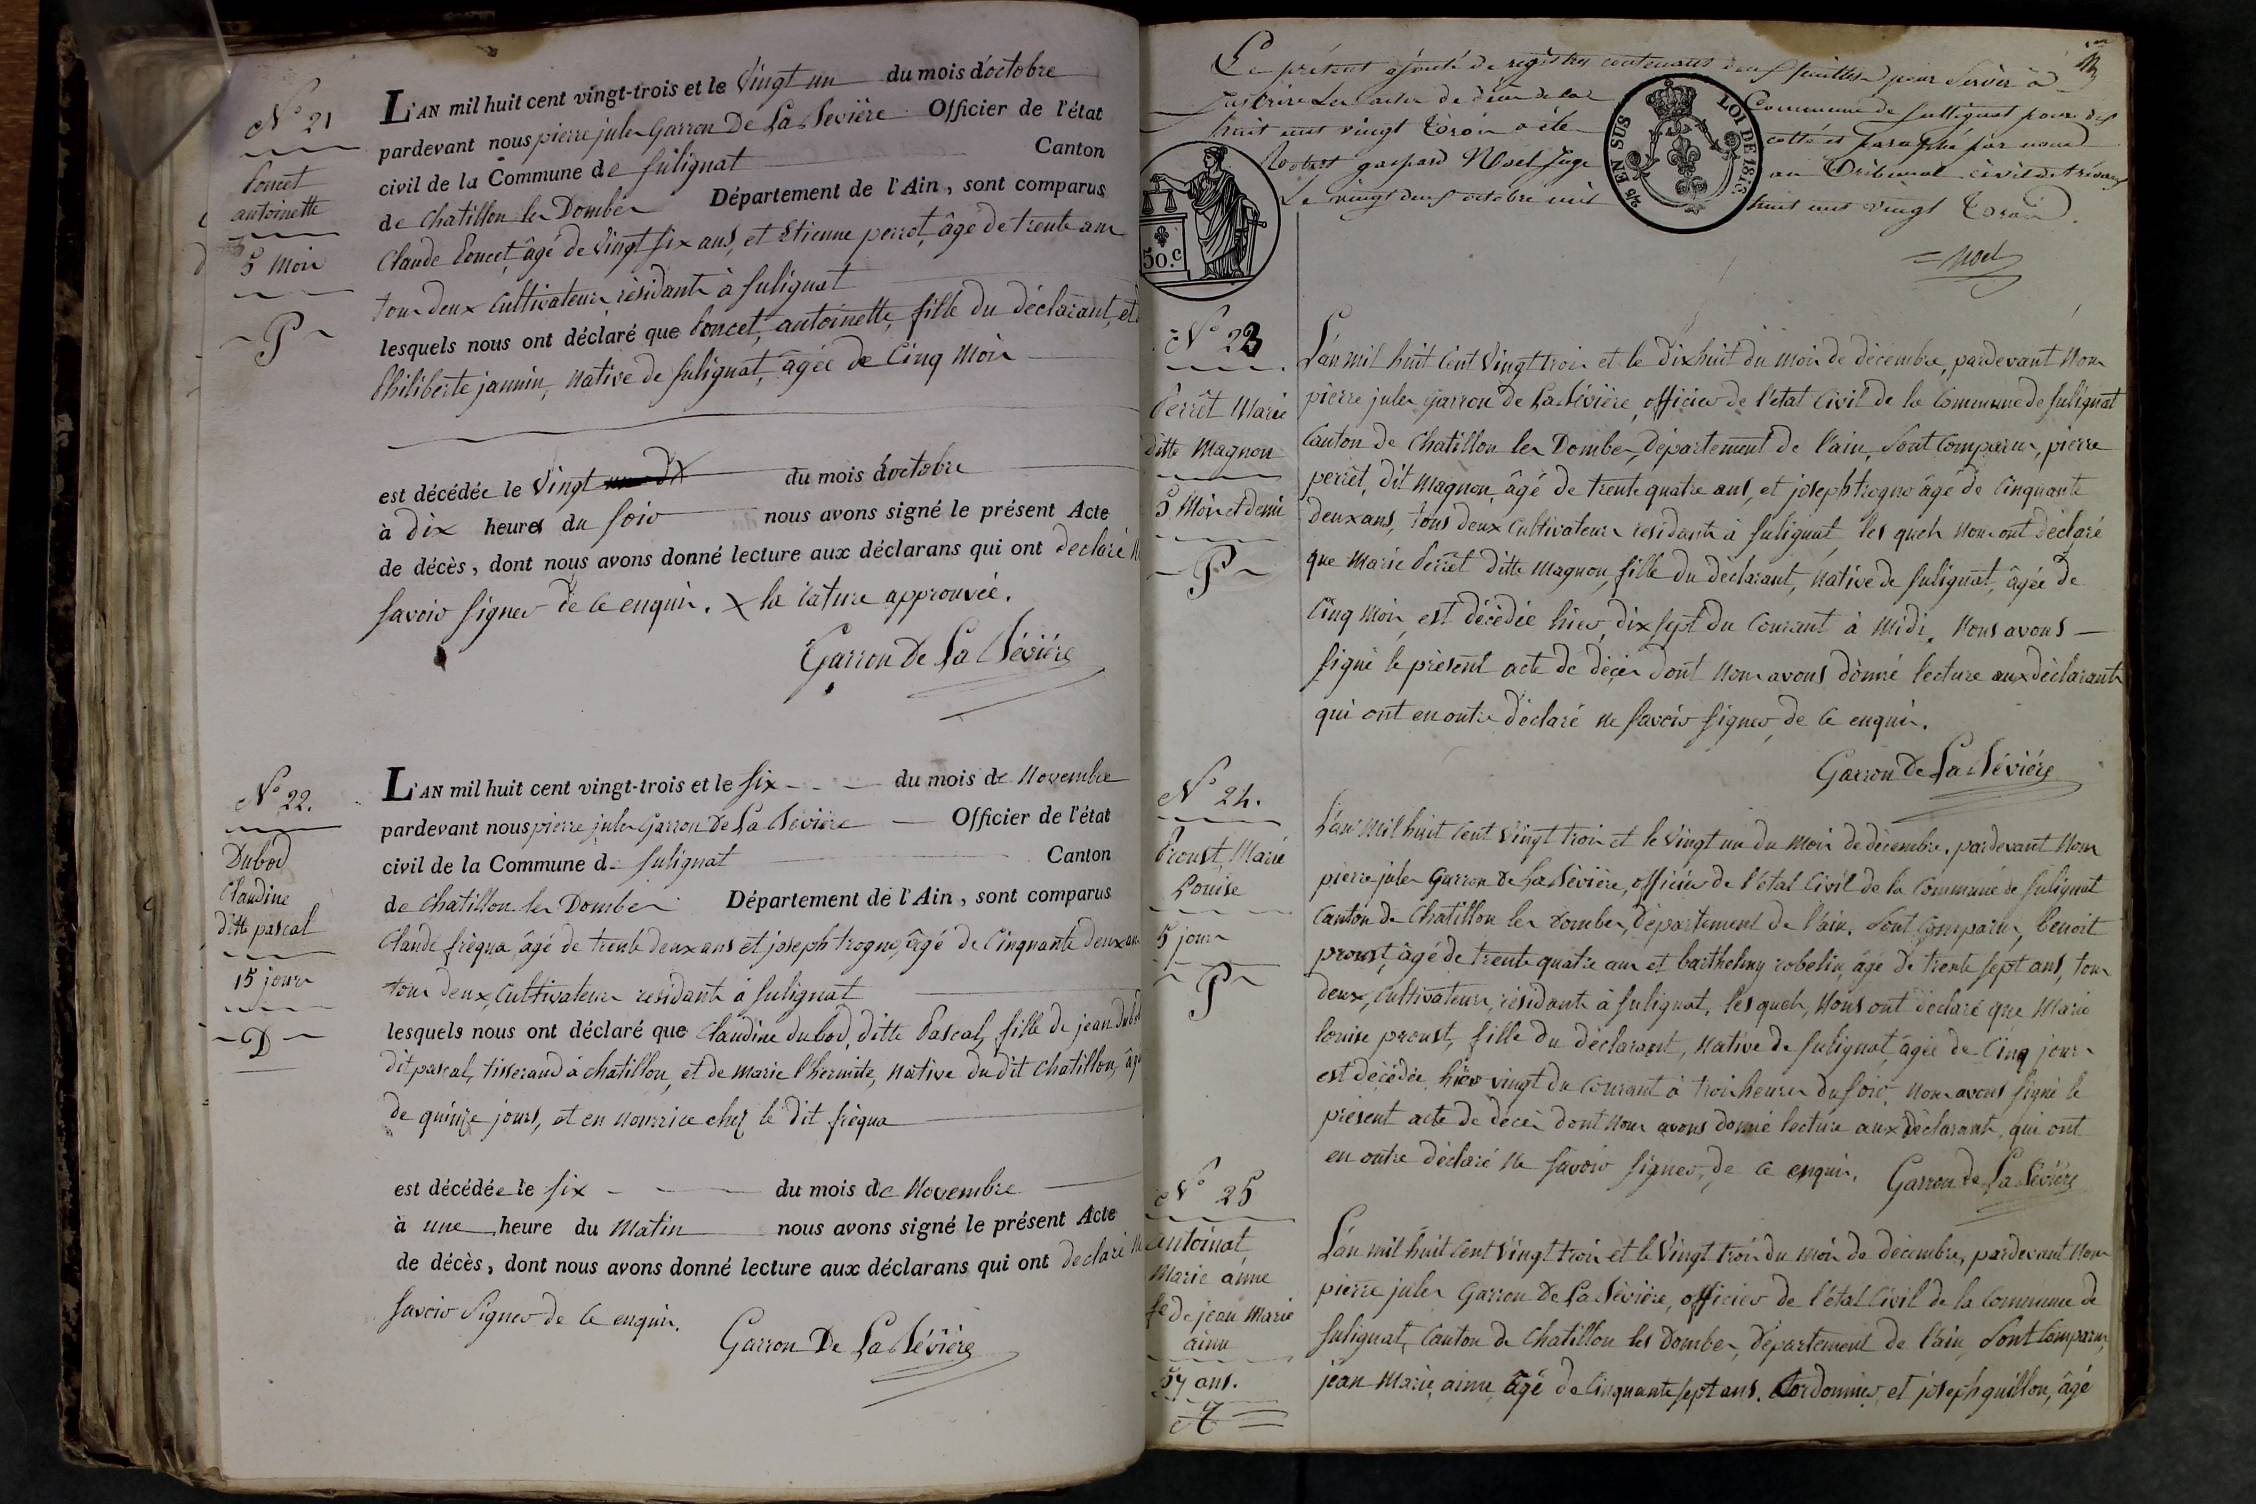 N° 21
Poncet
antoinette
5 mois
P
L'AN mil huit cent vingt-trois et le Vingt un du mois d'octobre
pardevant nous pierre jules Garron De La Sevière Officier de l'état
civil de la Commune de Sulignat Canton
de Chatillon les Dombes Département de l'Ain, sont comparus
Claude Poncet, âgé de vingt six ans, et Etienne perrot, âgé de trente ans
tous deux Cultivateurs, résidants à Sulignat
lesquels nous ont déclaré que Poncet, antoinette, fille du déclarant, et
Philiberte jannin, native de Sulignat, âgée de Cinq Mois
est décédée le Vingt X du mois d'octobre
à dix heures du soir nous avons signé le présent Acte
de décès, dont nous avons donné lecture aux déclarans qui ont declaré
savoir signer de ce enquis. X la rature approuvée.
Garron De La Sévière
N° 22.
Dubod
Claudine
ditte pascal
15 jours
D
L'AN mil huit cent vingt-trois et le six du mois de Novembre
pardevant nous pierre jules Garron De La Sévière Officier de l'état
civil de la Commune de Sulignat Canton
de Chatillon les Dombes Département de l'Ain, sont comparus
Claude fréqua, âgé de trente deux ans et joseph trogno, âgé de Cinquante deux ans
tous deux, Cultivateurs residants à Sulignat
lesquels nous ont déclaré que Claudine Dubod, ditte Pascal, fille de jean
dit pascal, tisserand à chatillon, et de marie l'hermite, native du dit Chatillon,
de quinze jours, et en nourrice chez le dit fréqua
est décédée le six du mois de Novembre
à une heure du Matin nous avons signé le présent Acte
de décès, dont nous avons donné lecture aux déclarans qui ont declaré
savoir signer de ce enquis.
Garron De La Sévière
Le présent ajouté de registre contenant deux feuilles pour servir à
inscrire les actes de décès de la Commune de Sulignat pour dix
huit cent vingt trois a été cotté et paraphé par nous
Robert gaspard Noel juge au Tribunal civil de trévoux
Le vingt deux octobre mil huit cent vingt trois.
Noel
50.c
45 EN SUS
LOI DE 1816
N° 23
Perret Marie
ditte Magnon
5 Mois et demi
P
L'an mil huit cent Vingt trois et le dix huit du mois de décembre, pardevant Nous
pierre jules Garron de La Sévière, officier de l'état Civil de la Commune de Sulignat
Canton de Chatillon les Dombes, département de l'ain, sont Comparus, pierre
perret, dit Magnon, âgé de trente quatre ans, et joseph trogno âgé de Cinquante
deux ans, tous deux Cultivateurs residants à Sulignat, les quels nous ont déclaré
que Marie Perret ditte Magnon, fille du déclarant, Native de Sulignat, âgée de
Cinq Mois, est décédée hier, dix sept du Courant à midi. Nous avons
signé le présent acte de décès dont nous avons donné lecture aux déclarants
qui ont en outre déclaré ne savoir signer, de ce enquis.
Garron De La Sévière
N° 24.
Proust, Marie
Louise
5 jours
P
L'an Mil huit Cent Vingt trois et le vingt un du mois de décembre. pardevant Nous
pierre jules Garron De La Sévière, officier de l'état Civil de la Commune de Sulignat
Canton de Chatillon les Dombes, département de l'ain. sont Comparus, benoit
proust, âgé de trente quatre ans et barthelmy robelin, âgé de trente sept ans, tous
deux, Cultivateurs, résidants à Sulignat, lesquels Nous ont déclaré que Marie
louise proust, fille du déclarant, native de Sulignat, âgée de Cinq jours
est décédée, hier vingt du Courant à trois heures du soir. Nous avons signé le
présent acte de décès dont Nous avons donné lecture aux déclarants, qui ont
en outre déclaré ne savoir signer, de ce enquis. Garron de La Sévière
N° 25
antoinat
Marie aimé
fe de jean Marie
aimé
57 ans.
A
L'an mil huit Cent vingt trois et le Vingt trois du mois de décembre, pardevant Nous
pierre jules Garron De La Sévière, officier de l'état Civil de la Commune de
Sulignat, Canton de Chatillon les Dombes, département de l'ain, sont Comparus,
jean Marie, aimé, âgé de Cinquante sept ans. Cordonnier, et joseph guillon, âgé